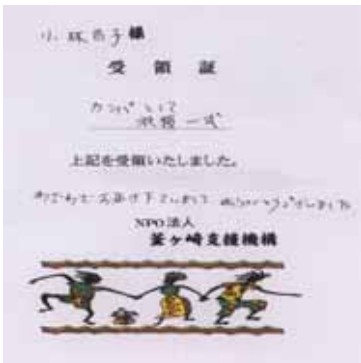 小林恭子様
受領証
カンパとして
衣類一式
上記を受領いたしました。
わざわざお届け下さいまして ありがとうございました
NPO法人
釜ヶ崎支援機構